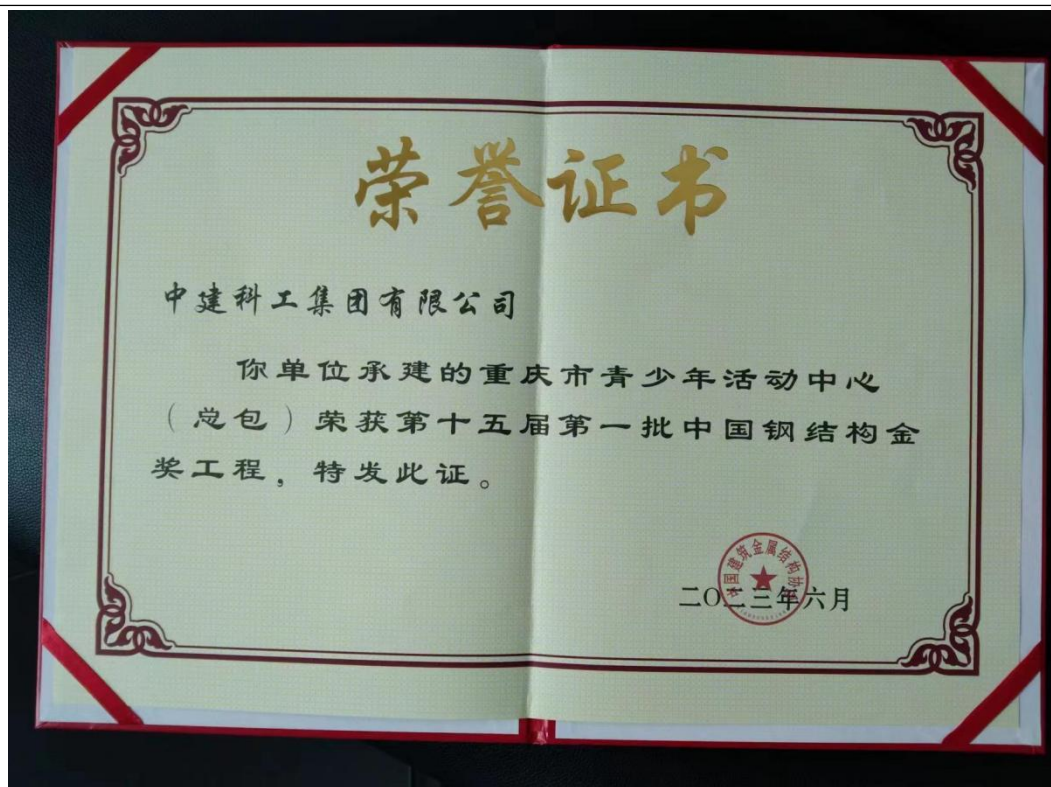 荣誉证书
中建科工集团有限公司
你单位承建的重庆市青少年活动中心
（总包）荣获第十五届第一批中国钢结构金
奖工程，特发此证。
中国建筑金属结构协会
二〇二三年六月